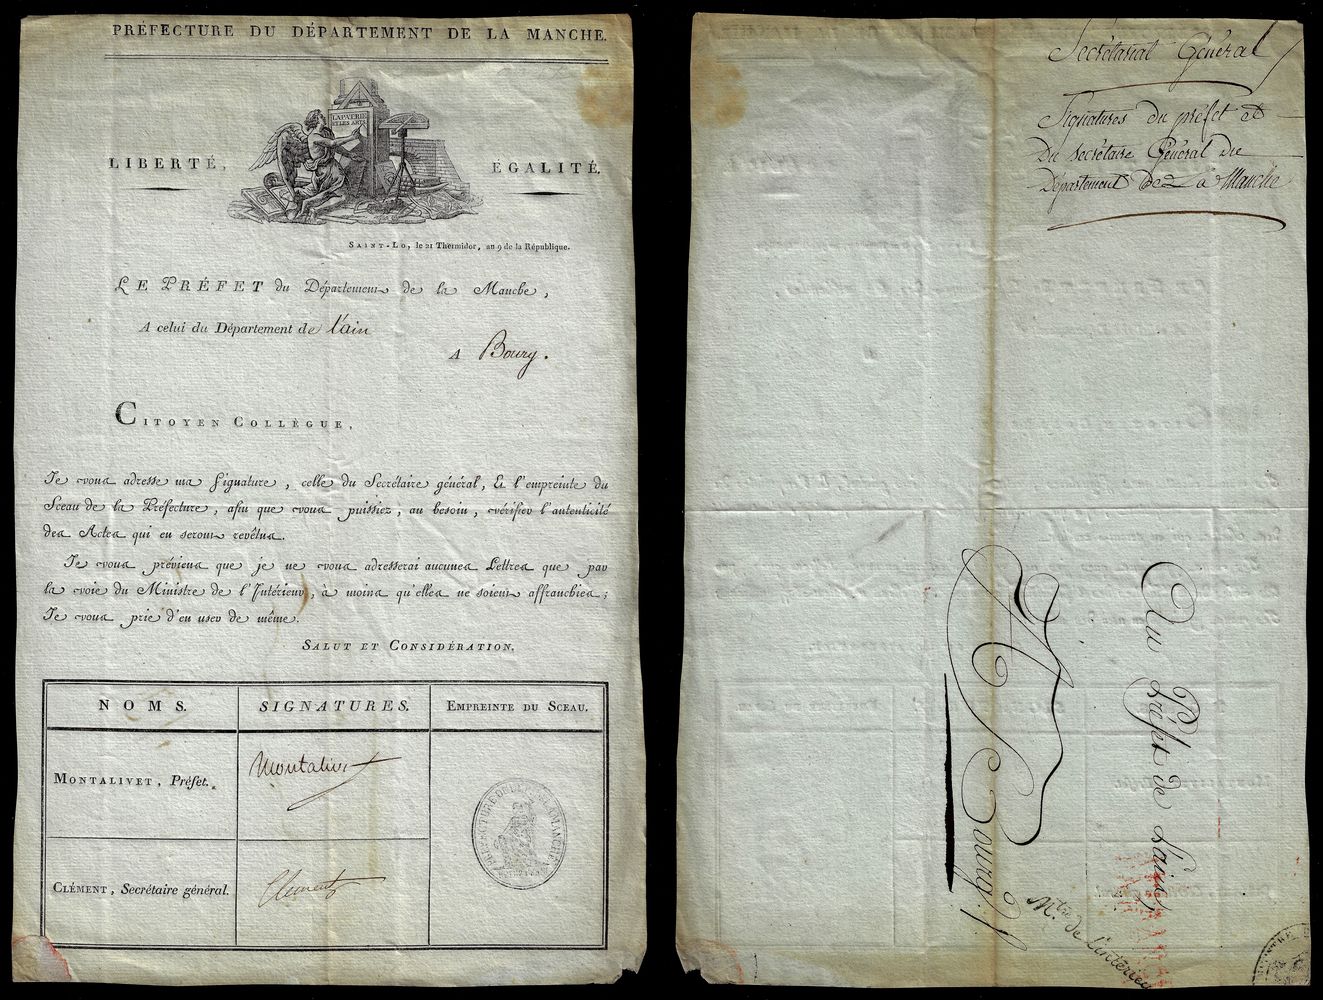 PRÉFECTURE DU DÉPARTEMENT DE LA MANCHE.
LA PVERIE
ET LES ARTS
LIBERTÉ, ÉGALITÉ.
SAINT-LO, le 21 Thermidor, an 9 de la République.
LE PRÉFET du Département de la Manche,
A celui du Département de l'ain
A Bourg.
CITOYEN COLLÈGUE,
Je vous adresse ma Signature, celle du Secrétaire général, & l'empreinte du
Sceau de la Préfecture, afin que vous puissiez, au besoin, vérifier l'autenticité
des Actes qui en seront revêtus.
Je vous préviens que je ne vous adresserai aucunes Lettres que par
la voie du Ministre de l'Intérieur, à moins qu'elles ne soient affranchies;
Je vous prie d'en user de même.
SALUT ET CONSIDÉRATION.
NOMS. SIGNATURES. EMPREINTE DU SCEAU.
MONTALIVET, Préfet. Montalivet
PRÉFECTURE DE LA MANCHE
CLÉMENT, Secrétaire général. Clement
Secrétariat Général
Signatures du préfet et
Du secrétaire Général du
Département De La Manche
Au Préfet de L'ain,
A Bourg.
M.tre de L'intérieur